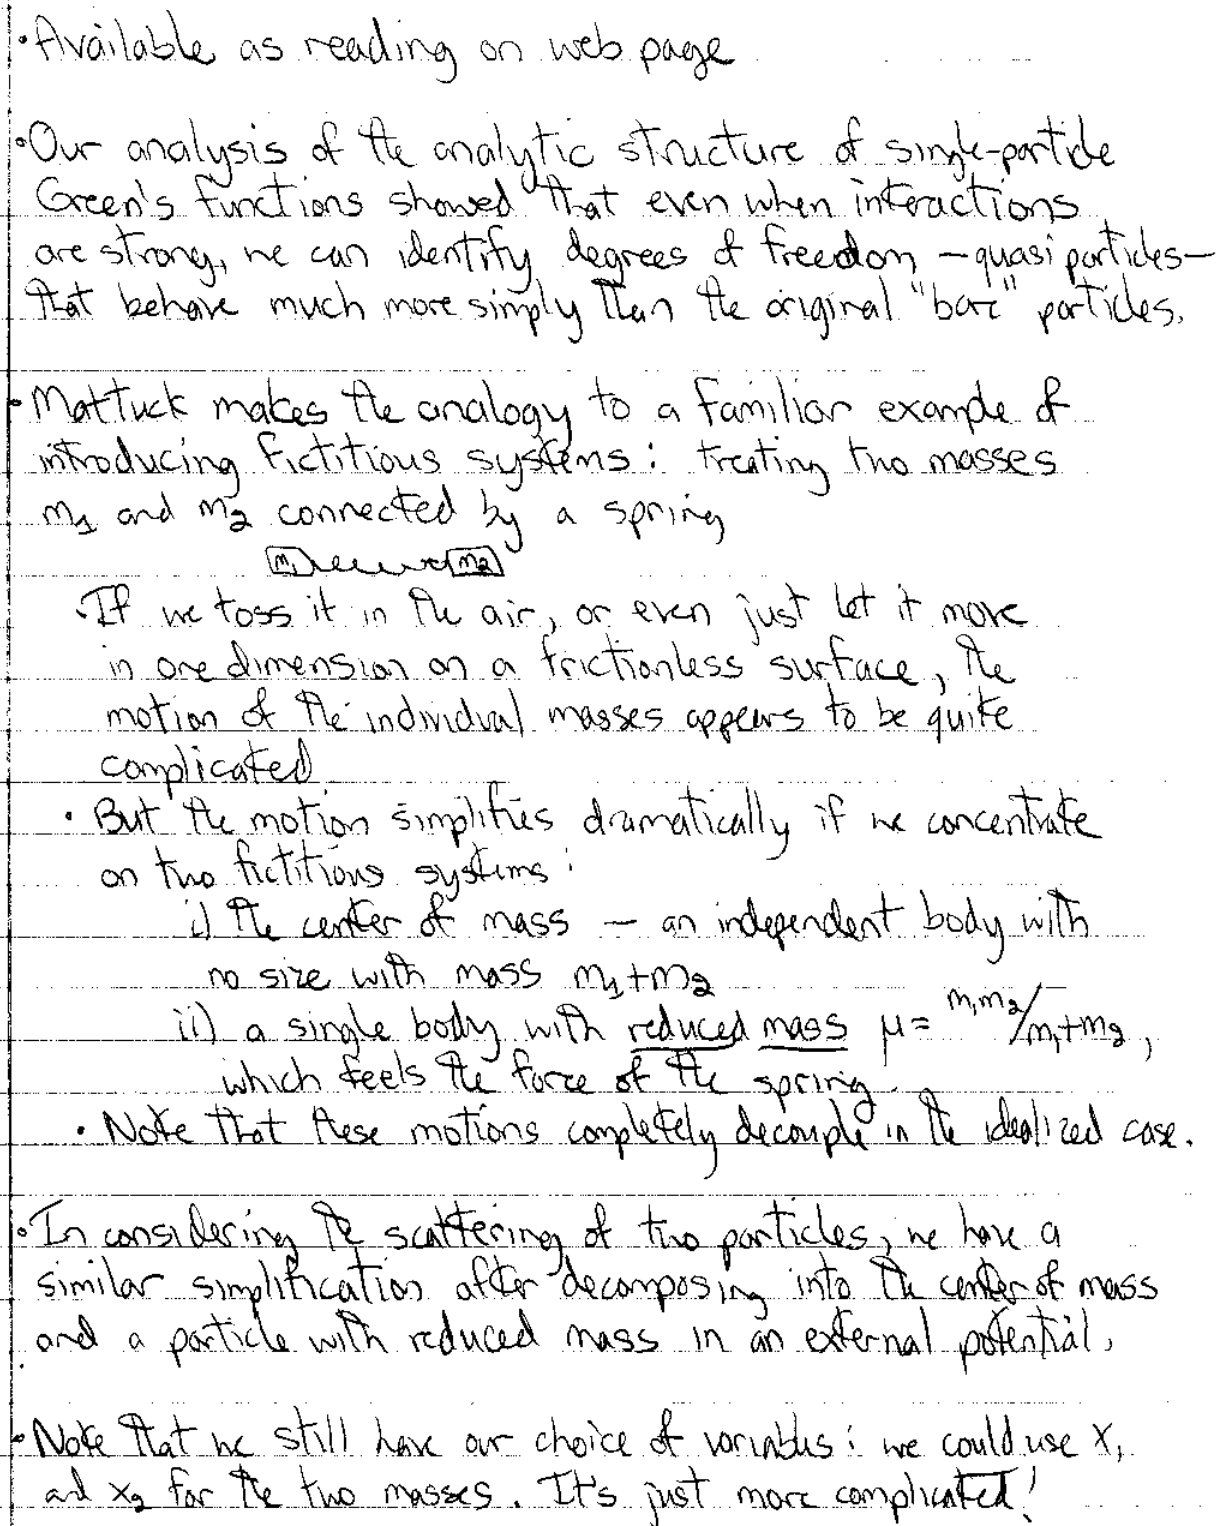 • Available as reading on web page
• Our analysis of the analytic structure of single-particle
Green's functions showed that even when interactions
are strong, we can identify degrees of freedom – quasiparticles –
that behave much more simply than the original "bare" particles.
• Mattuck makes the analogy to a familiar example of
introducing fictitious systems: treating two masses
m₁ and m₂ connected by a spring
m₁ m₂
• If we toss it in the air, or even just let it move
in one dimension on a frictionless surface, the
motion of the individual masses appears to be quite
complicated
• But the motion simplifies dramatically if we concentrate
on two fictitious systems:
i) the center of mass – an independent body with
no size with mass m₁+m₂
ii) a single body with reduced mass μ = m₁m₂/m₁+m₂,
which feels the force of the spring.
• Note that these motions completely decouple in the idealized case.
• In considering the scattering of two particles, we have a
similar simplification after decomposing into the center of mass
and a particle with reduced mass in an external potential.
• Note that we still have our choice of variables: we could use x₁
and x₂ for the two masses. It's just more complicated!